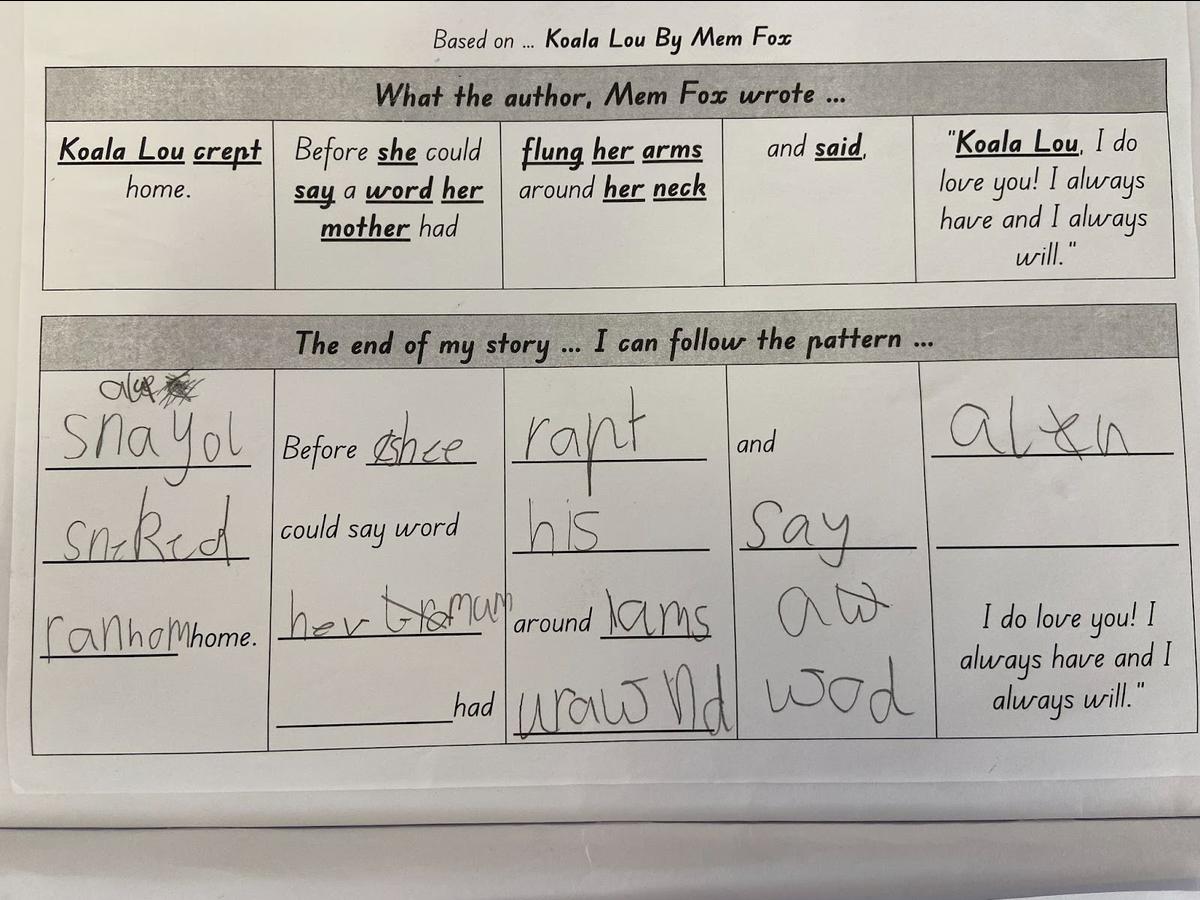 Based on ... Koala Lou By Mem Fox
What the author, Mem Fox wrote ...
Koala Lou crept
home.
Before she could
say a word her
mother had
flung her arms
around her neck
and said,
"Koala Lou, I do
love you! I always
have and I always
will."
The end of my story ... I can follow the pattern ...
snayol
sniRid
ranhom home.
Before shee
could say word
her mum
had
rapt
his
around lams
urawnd
and
say
aw
wod
alen
I do love you! I
always have and I
always will."